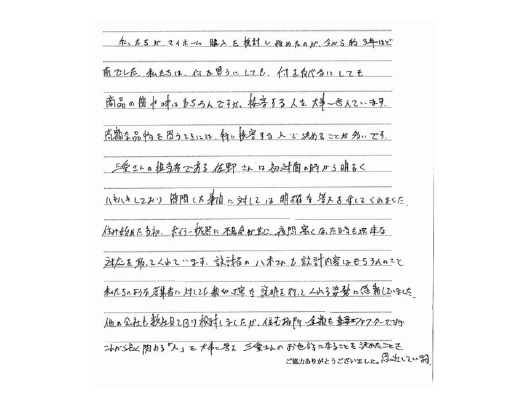 私たちがマイホーム購入を検討し始めたのが、今から約3年ほど
前でした。私たちは、何を買うにしても、何を食べるにしても
商品の質や味はもちろんですが、接客する人を大事に考えています。
高額な品物を買うときには、特に接客する人で決めることが多いです。
三愛さんの担当者である佐野さんは初対面の時から明るく
ハキハキしており質問した事項に対しては明確な答えを示してくれました。
住み始めた当初、ボイラー機器に不具合が生じ夜間寒くなった時も迅速な
対応を取ってくれています。設計者の八木さんも設計内容はもちろんのこと
私たちのような若輩者に対しても親切丁寧な説明を行ってくれる姿勢に感動していました。
他の会社も数社見て回り検討しましたが、住む場所、金額も重要なファクターですが
これから長く関わる「人」を大事に考え三愛さんのお世話になることを決めたことを
ご協力ありがとうございました。